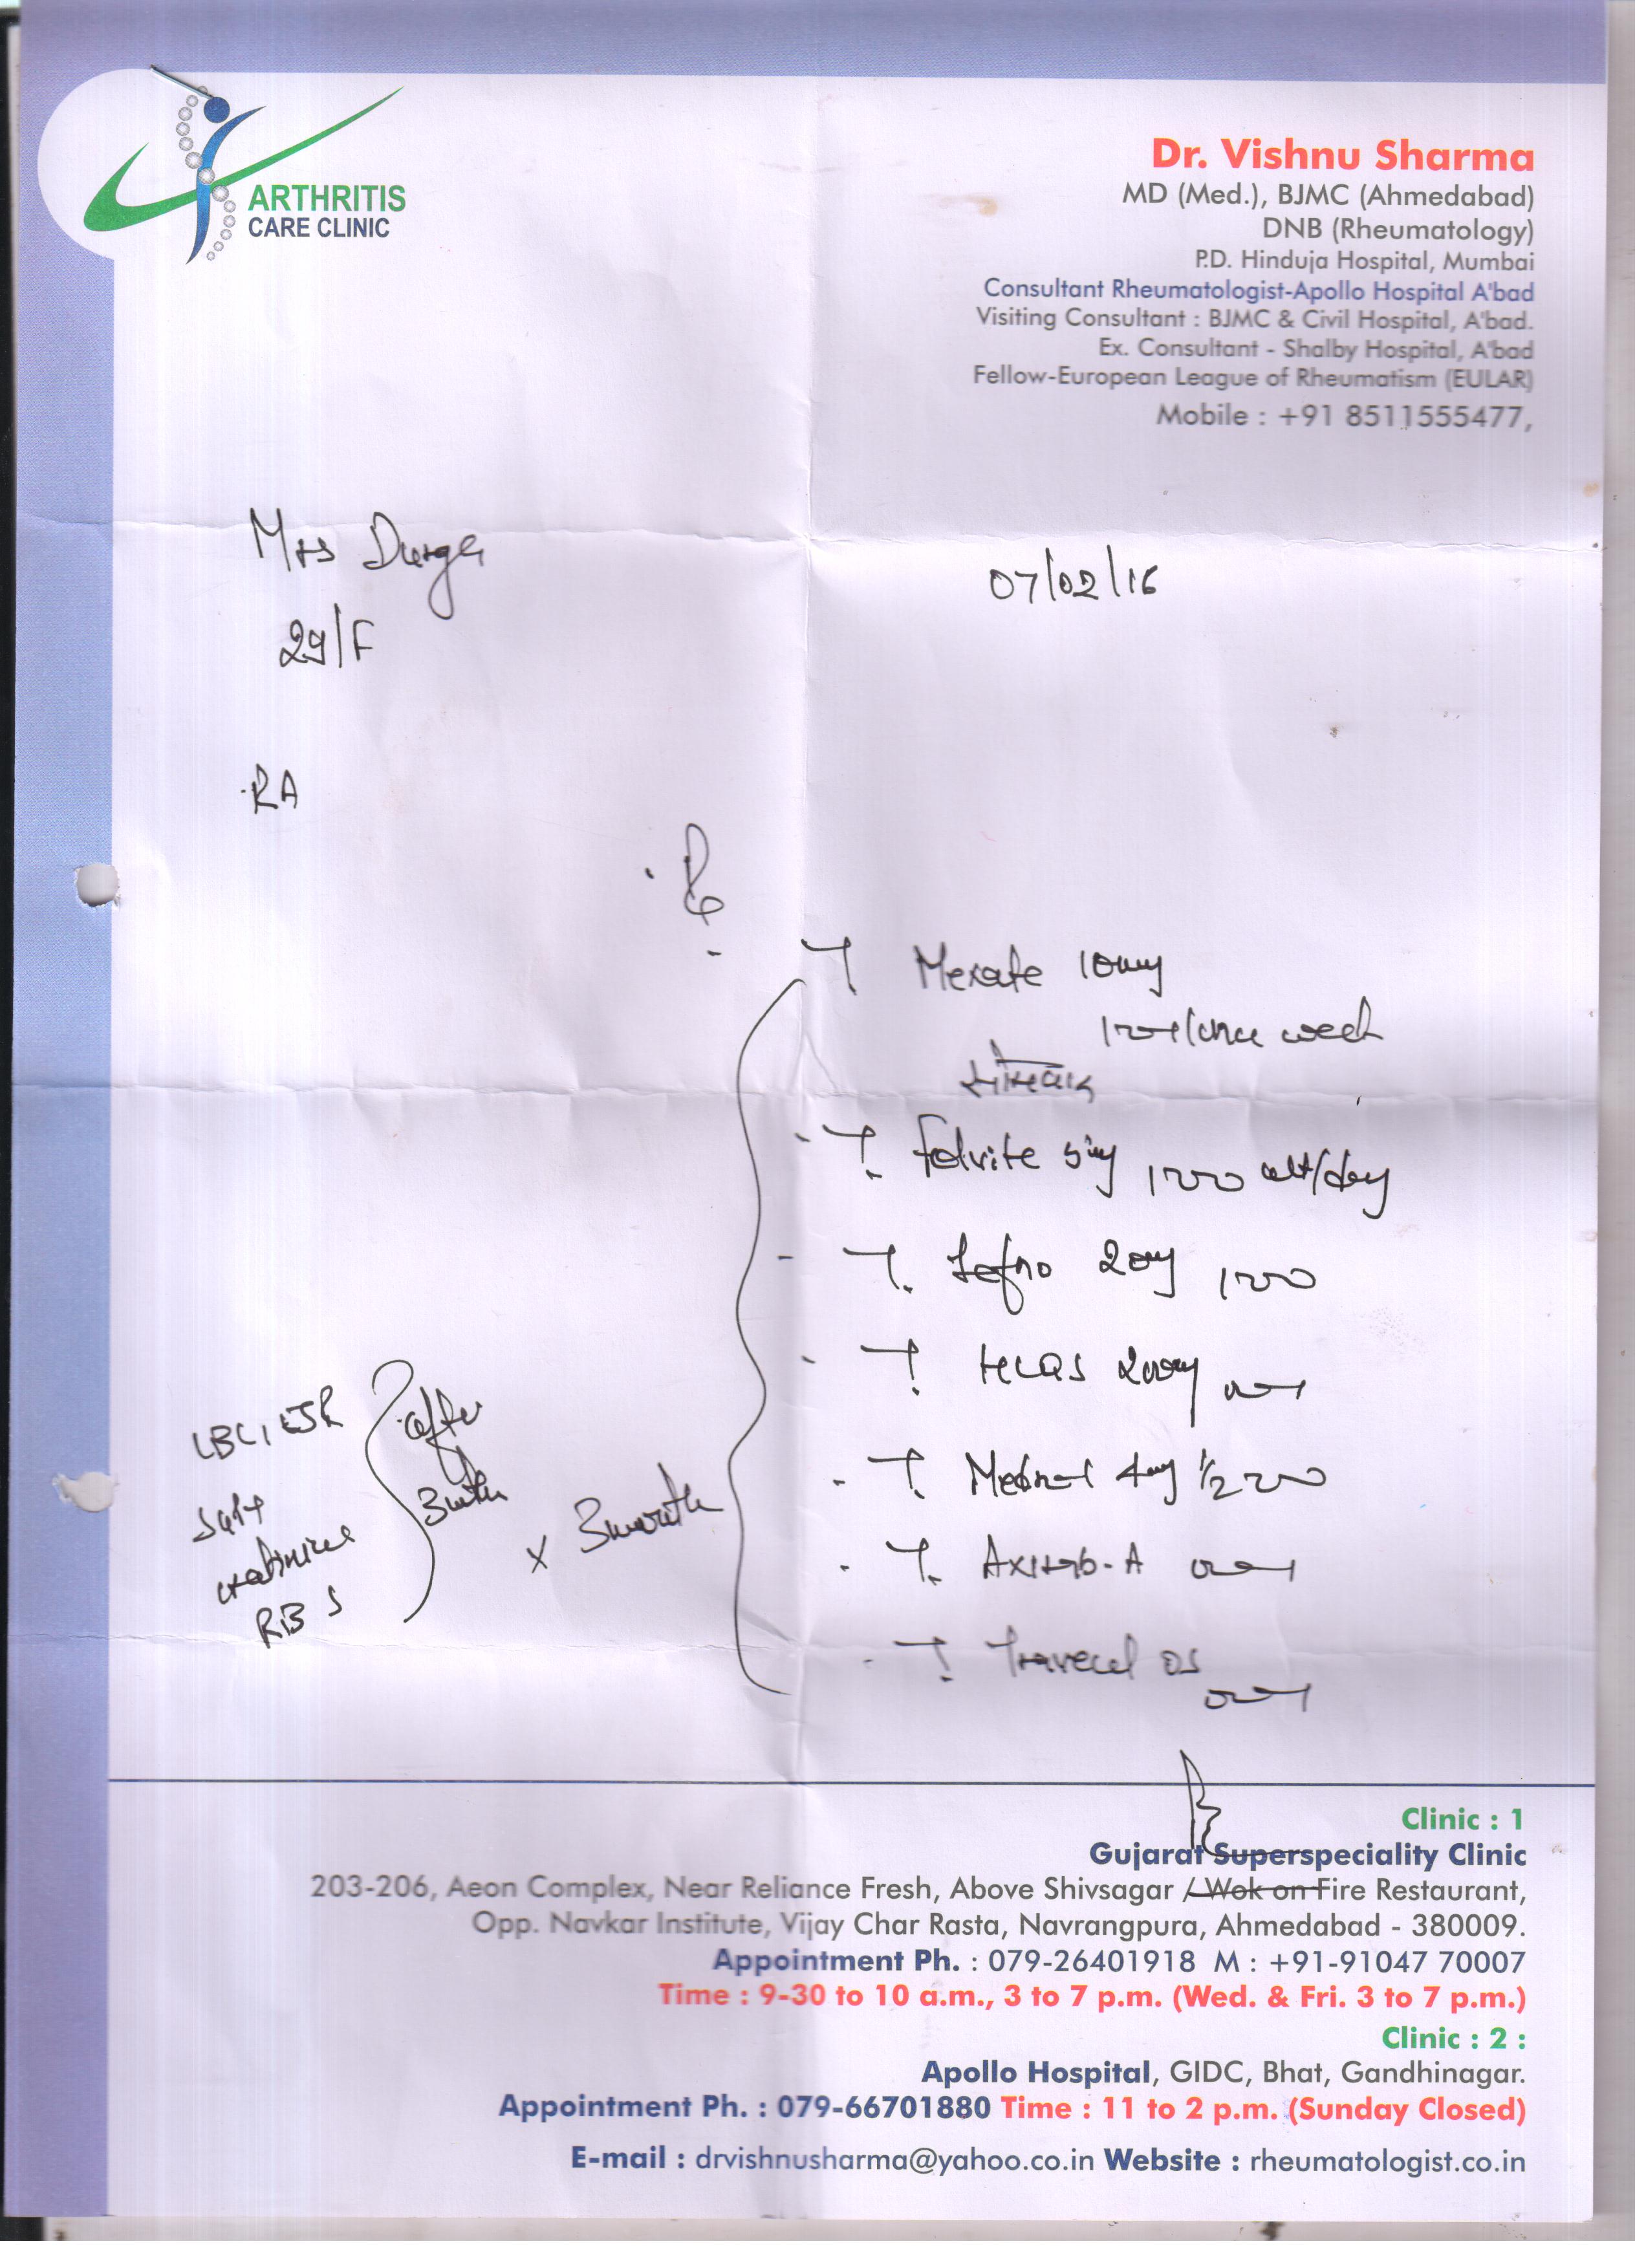 ARTHRITIS
CARE CLINIC
Dr. Vishnu Sharma
MD (Med.), BJMC (Ahmedabad)
DNB (Rheumatology)
P.D. Hinduja Hospital, Mumbai
Consultant Rheumatologist-Apollo Hospital A'bad
Visiting Consultant : BJMC & Civil Hospital, A'bad.
Ex. Consultant - Shalby Hospital, A'bad
Fellow-European League of Rheumatism (EULAR)
Mobile : +91 8511555477,
Mrs Durga
07/02/16
29/F
RA
T Mexate 10mg
week
सोमवार
T. Folvite 5mg alt/day
T. Lefno 20mg
T. HCQS 200mg
T. Medrol 4mg 1/2
T. A
T. OS
CBC, ESR
SGPT
creatinine
RBS
after
3mth
x 3month
Clinic : 1
Gujarat Superspeciality Clinic
203-206, Aeon Complex, Near Reliance Fresh, Above Shivsagar / Wok on Fire Restaurant,
Opp. Navkar Institute, Vijay Char Rasta, Navrangpura, Ahmedabad - 380009.
Appointment Ph. : 079-26401918 M : +91-91047 70007
Time : 9-30 to 10 a.m., 3 to 7 p.m. (Wed. & Fri. 3 to 7 p.m.)
Clinic : 2 :
Apollo Hospital, GIDC, Bhat, Gandhinagar.
Appointment Ph. : 079-66701880 Time : 11 to 2 p.m. (Sunday Closed)
E-mail : drvishnusharma@yahoo.co.in Website : rheumatologist.co.in